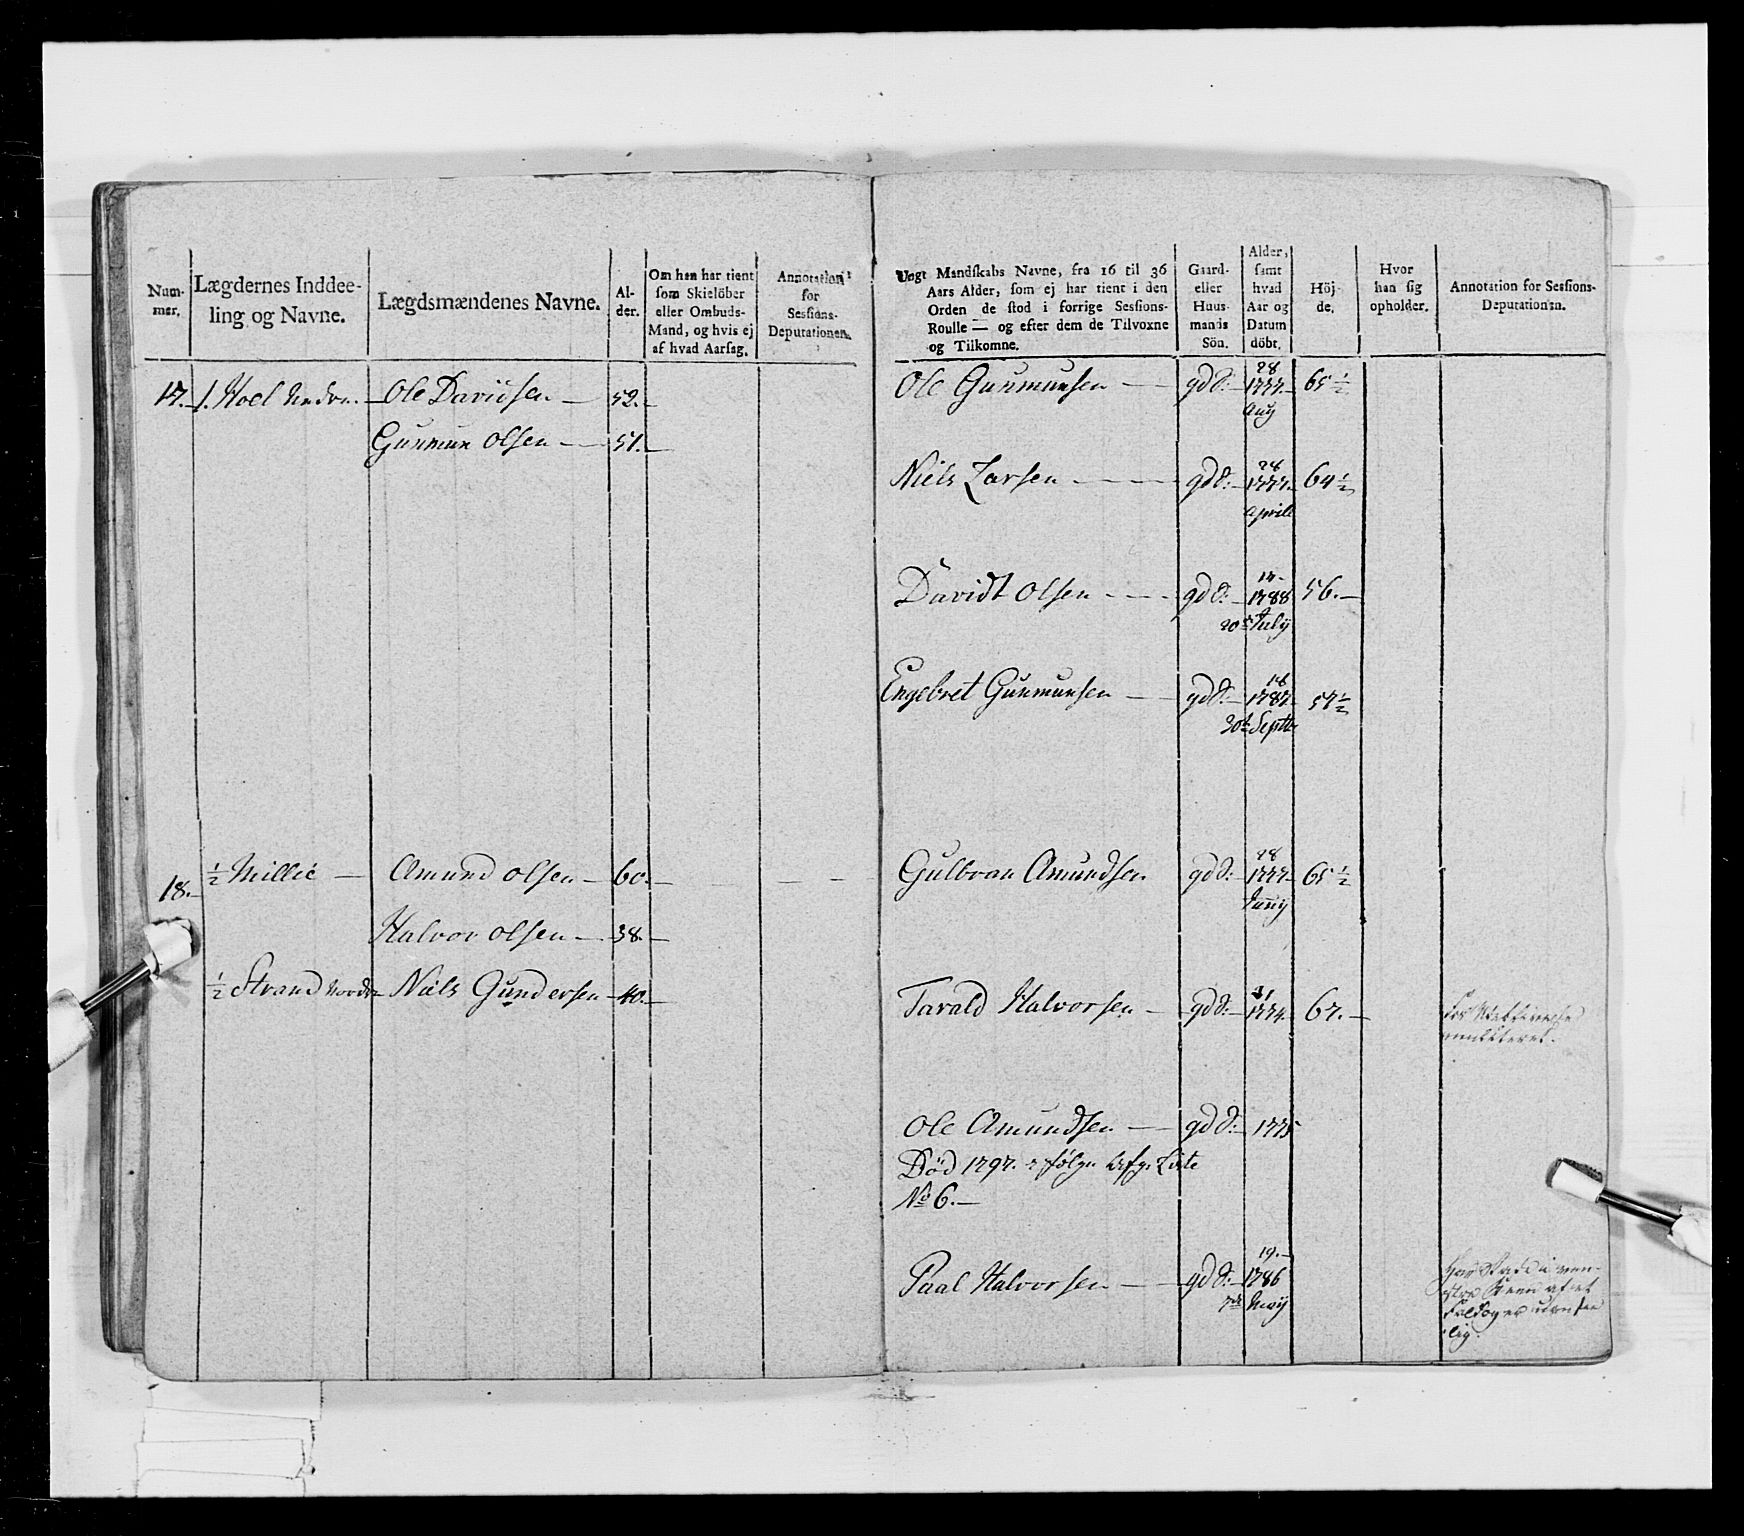 Num-
mer.
Lægdernes Inddee-
ling og Navne.
Lægdsmændenes Navne.
Al-
der.
Om han har tient
som Skielöber
eller Ombuds-
Mand, og hvis ej
af hvad Aarsag.
Annotation
for
Sessions-
Deputationen.
17. 1. Hoel Nedre Ole Davidsen 52.
Gunmun Olsen 51.
18. ½ Millie Amund Olsen 60.
Halvor Olsen 38.
½ Strand Nordre Niels Gundersen 40.
Ungt Mandskabs Navne, fra 16 til 36
Aars Alder, som ej har tient i den
Orden de stod i forrige Sessions-
Roulle — og efter dem de Tilvoxne
og Tilkomne.
Gaard-
eller
Huus-
mands
Sön.
Alder,
samt
hvad
Aar og
Datum
döbt.
Höj-
de.
Hvor
han sig
opholder.
Annotation for Sessions-
Deputationen.
28
Ole Gunmunsen gd S: 1777. 65½
Aug
28
Niels Larsen gd S: 1777. 64½
Aprile
Davidt Olsen gd S: 1788 56.
20de July
18
Engebret Gunmunsen gd S: 1787. 57½
30te Septbr
28
Gulbran Amundsen gd S: 1777. 65½
Juny
Tarald Halvorsen gd S: 1774. 67.
Ole Amundsen gd S: 1775
Död 1797. Liste
No 6.
19.
Paal Halvorsen gd S: 1786
7de May